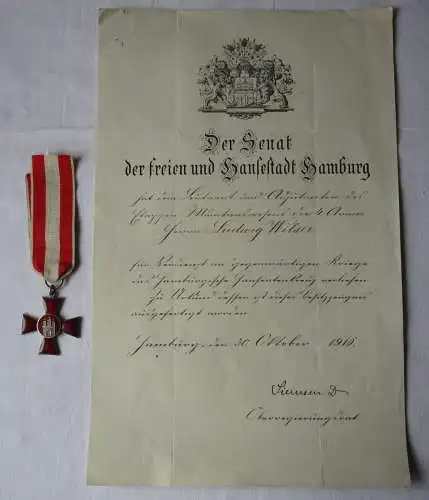 Der Senat
der freien und Hansestadt Hamburg
hat dem Leutnant und Adjutanten des
Etappen Munitionswesens der 4 Armee
Herrn Ludwig Wilser
für Verdienst im gegenwärtigen Kriege
das Hamburgische Hanseatenkreuz verliehen
Zu Urkund dessen ist dieses Besitzzeugnis
ausgefertigt worden
Hamburg, den 30 Oktober 1916.
Oberregierungsrat